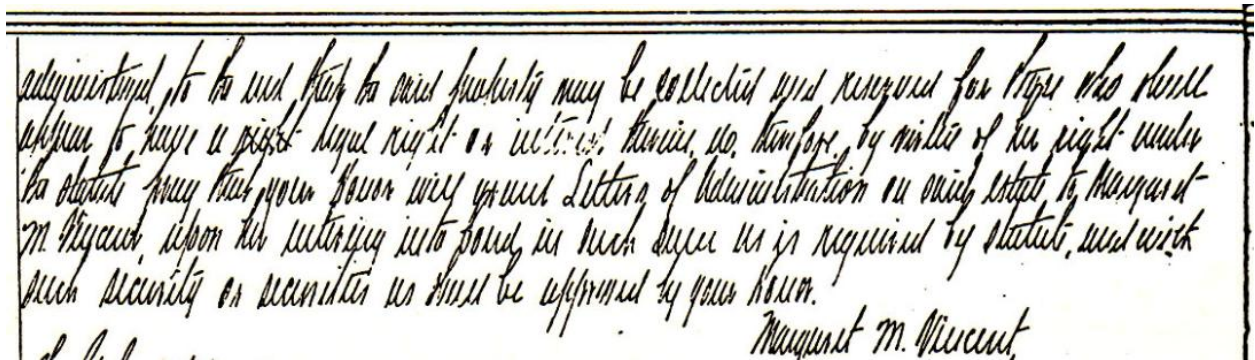 administered, to the end that the said property may be collected and reserved for those who shall
appear to have a right legal right or interest therein, do, therefore, by virtue of her right under
the statute pray that your Honor will grant Letters of Administration on said estate to Margaret
M. Vincent, upon her entering into bond, in such sum as is required by statute, and with
such security or securities as shall be approved by your Honor.
Margaret M. Vincent,